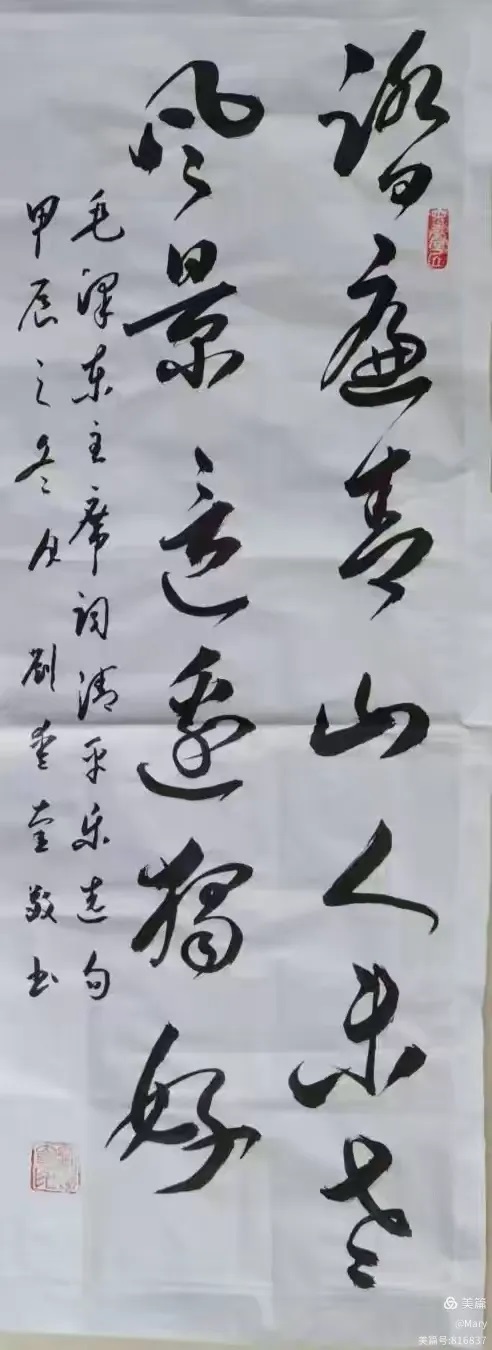 踏遍青山人未老
風景這邊獨好
毛泽东主席词清平乐选句
甲辰之冬月 刘 敬书
美篇
@Mary
美篇号:816837